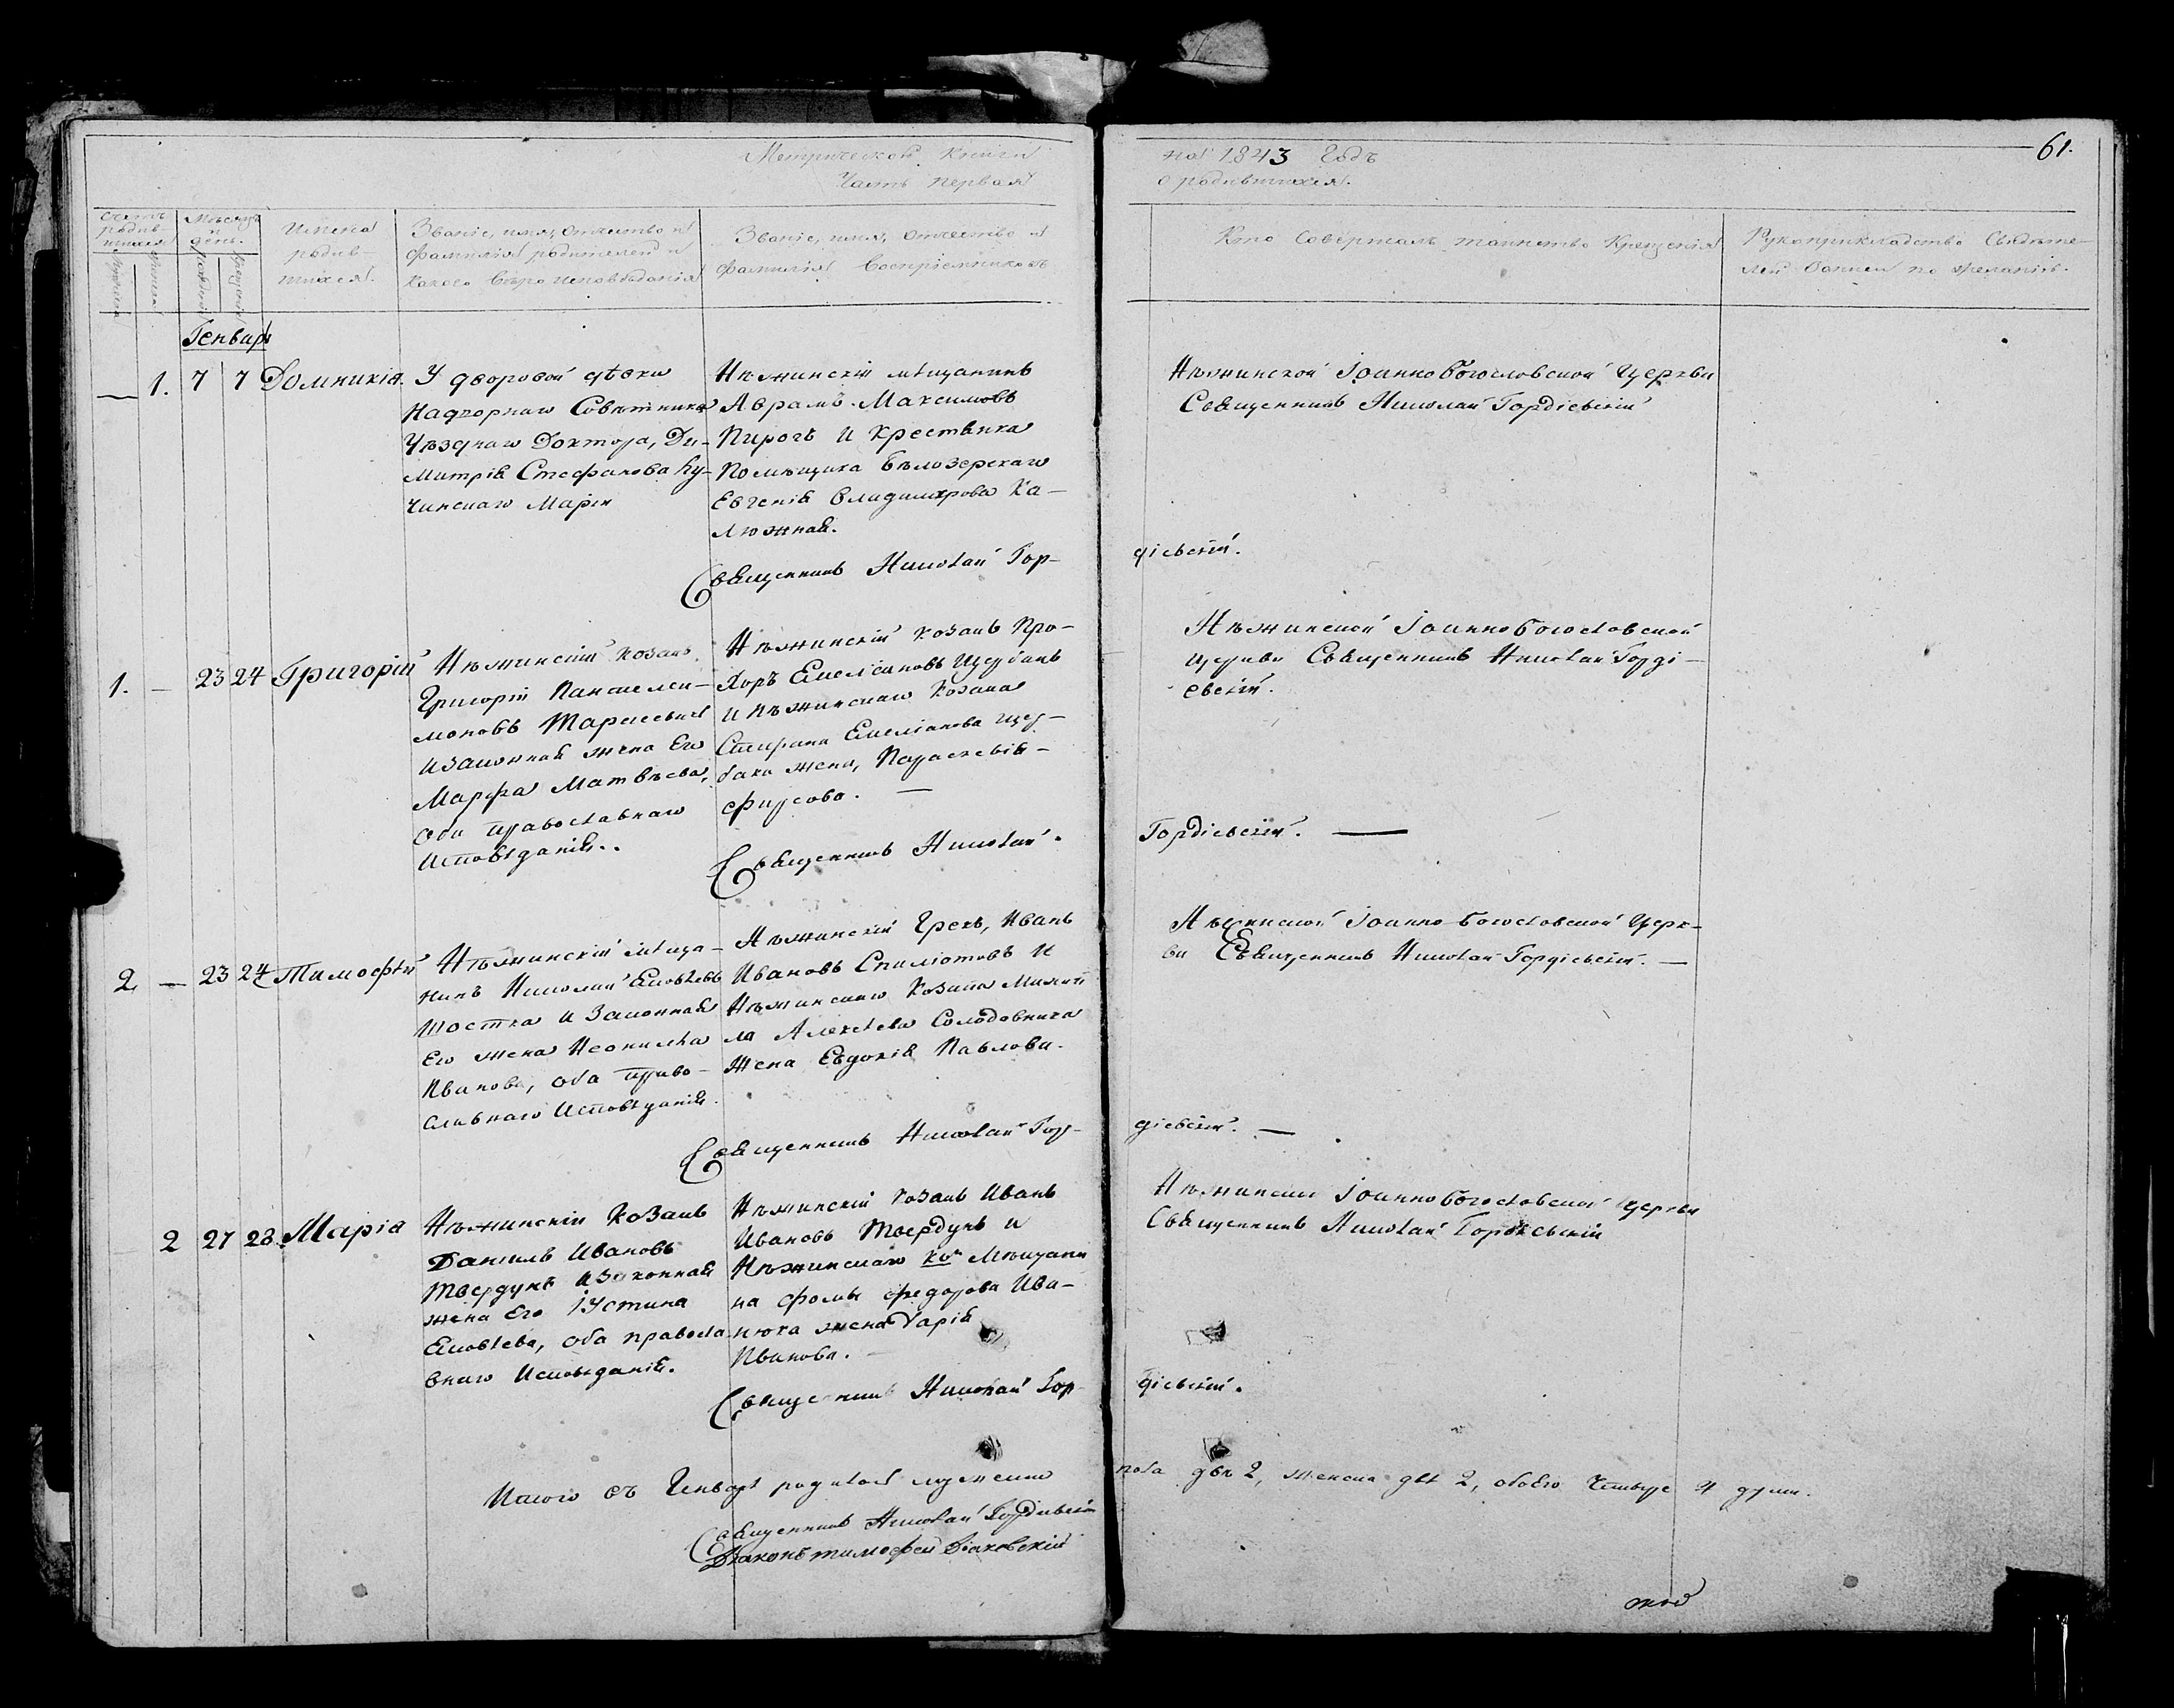 Метрической Книги
Часть первая
на 1843 Годъ
о родившихся.
61.
Счетъ родив-
шихся
Мѣсяцъ
и
день.
Имена
родив-
шихся.
Званіе, имя, Отчество и
фамилія родителей и
Какого Вѣроисповѣданія
Званіе, имя, Отчество и
фамилія Воспріемниковъ
Кто Совершалъ таинство Крещенія
Рукоприкладство Свидѣте-
лей записи по желанію.
Генваръ
1. 7 7 Домникія.
У дворовой дѣвки
Надворнаго Совѣтника
Уѣзднаго Доктора, Ди-
митрія Стефанова Ку-
чинскаго Маріи
Нѣжинскій мѣщанинъ
Аврамъ Максимовъ
Пирогъ и Крестьянка
Помѣщика Бѣлозерскаго
Евгенія Владимірова Ка-
люжная.
Священникъ Николай Гор-
діевскій.
Нѣжинской Іоанно Богословской Церкви
Священникъ Николай Гордіевскій
1. — 23 24 Григорій
Нѣжинскій козакъ
Григорій Пантелеи-
моновъ Тарасевичъ
и законная жена Его
Марфа Матвѣева,
оба православнаго
Исповѣданія..
Нѣжинскій козакъ Про-
хоръ Емеліановъ Щербакъ
и нѣжинскаго козака
Спиридона Емеліанова Щер-
бака жена, Параскевія
Фирсова. —
Священникъ Николай
Гордіевскій. —
Нѣжинской Іоанно Богословской
Церкви Священникъ Николай Горді-
евскій.
2 — 23 24 Тимофѣй
Нѣжинскій мѣща-
нинъ Николай Яковлевъ
Шостка и Законная
Его жена Неонила
Иванова, оба право-
славнаго Исповѣданія.
Нѣжинскій Грекъ, Иванъ
Ивановъ Спиліотовъ и
Нѣжинскаго Козака Михай
ла Алексѣева Солодовника
Жена Евдокія Павлова.
Священникъ Николай Гор-
діевскій. —
Нѣжинской Іоанно Богословской Церк-
ви Священникъ Николай Гордіевскій. —
2 27 28 Марія
Нѣжинскій Козакъ
Даніилъ Ивановъ
Твердунъ и Законная
жена Его Іустина
Яковлева, оба правосла
внаго Исповѣданія.
Нѣжинскій Козакъ Иванъ
Ивановъ Твердунъ и
Нѣжинскаго Мѣщани
на Фомы Федорова Ива-
нюка жена Дарія
Иванова. —
Священникъ Николай Гор-
діевскій.
Нѣжинской Іоанно Богословской Церкви
Священникъ Николай Гордіевскій
Итого въ Генварѣ родилось мужеска
пола два 2, женска двѣ 2, обоего Четыре 4 души.
Священникъ Николай Гордіевскій
Діаконъ тимофей Діаковскій